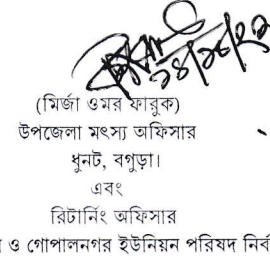 (মির্জা ওমর ফারুক)
উপজেলা মৎস্য অফিসার
ধুনট, বগুড়া।
এবং
রিটার্নিং অফিসার
ও গোপালনগর ইউনিয়ন পরিষদ